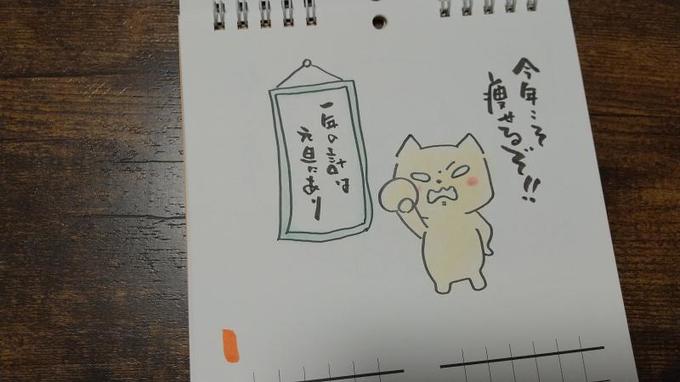 今年こそ
痩せるぞ!!
一年の計は
元旦にあり